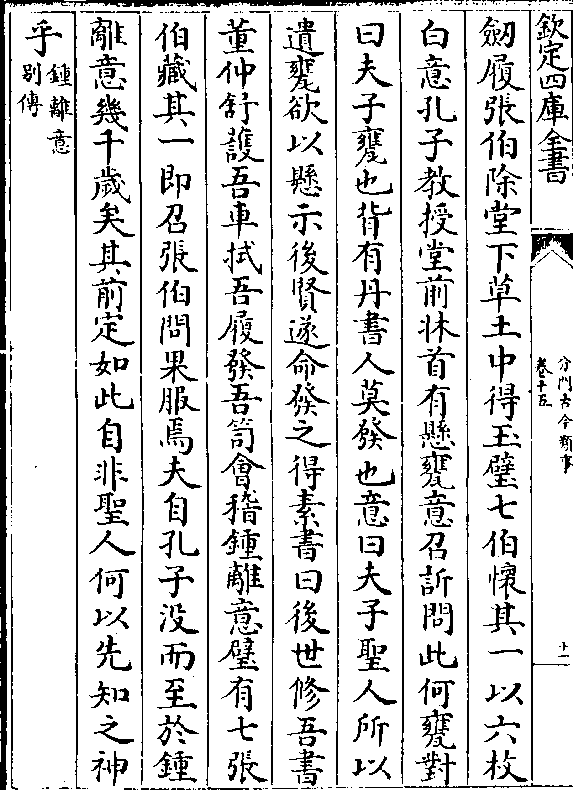 欽定四庫全書
分門古今類事
卷十五
十一
劔履張伯除堂下草土中得玉璧七伯懷其一以六枚
白意孔子教授堂前牀首有懸甕意召訢問此何甕對
曰夫子甕也背有丹書人莫發也意曰夫子聖人所以
遺甕欲以懸示後賢遂命發之得素書曰後世修吾書
董仲舒護吾車拭吾履發吾笥會稽鍾離意璧有七張
伯藏其一即召張伯問果服焉夫自孔子没而至於鍾
離意幾千歲矣其前定如此自非聖人何以先知之神
乎
鍾離意
别傳